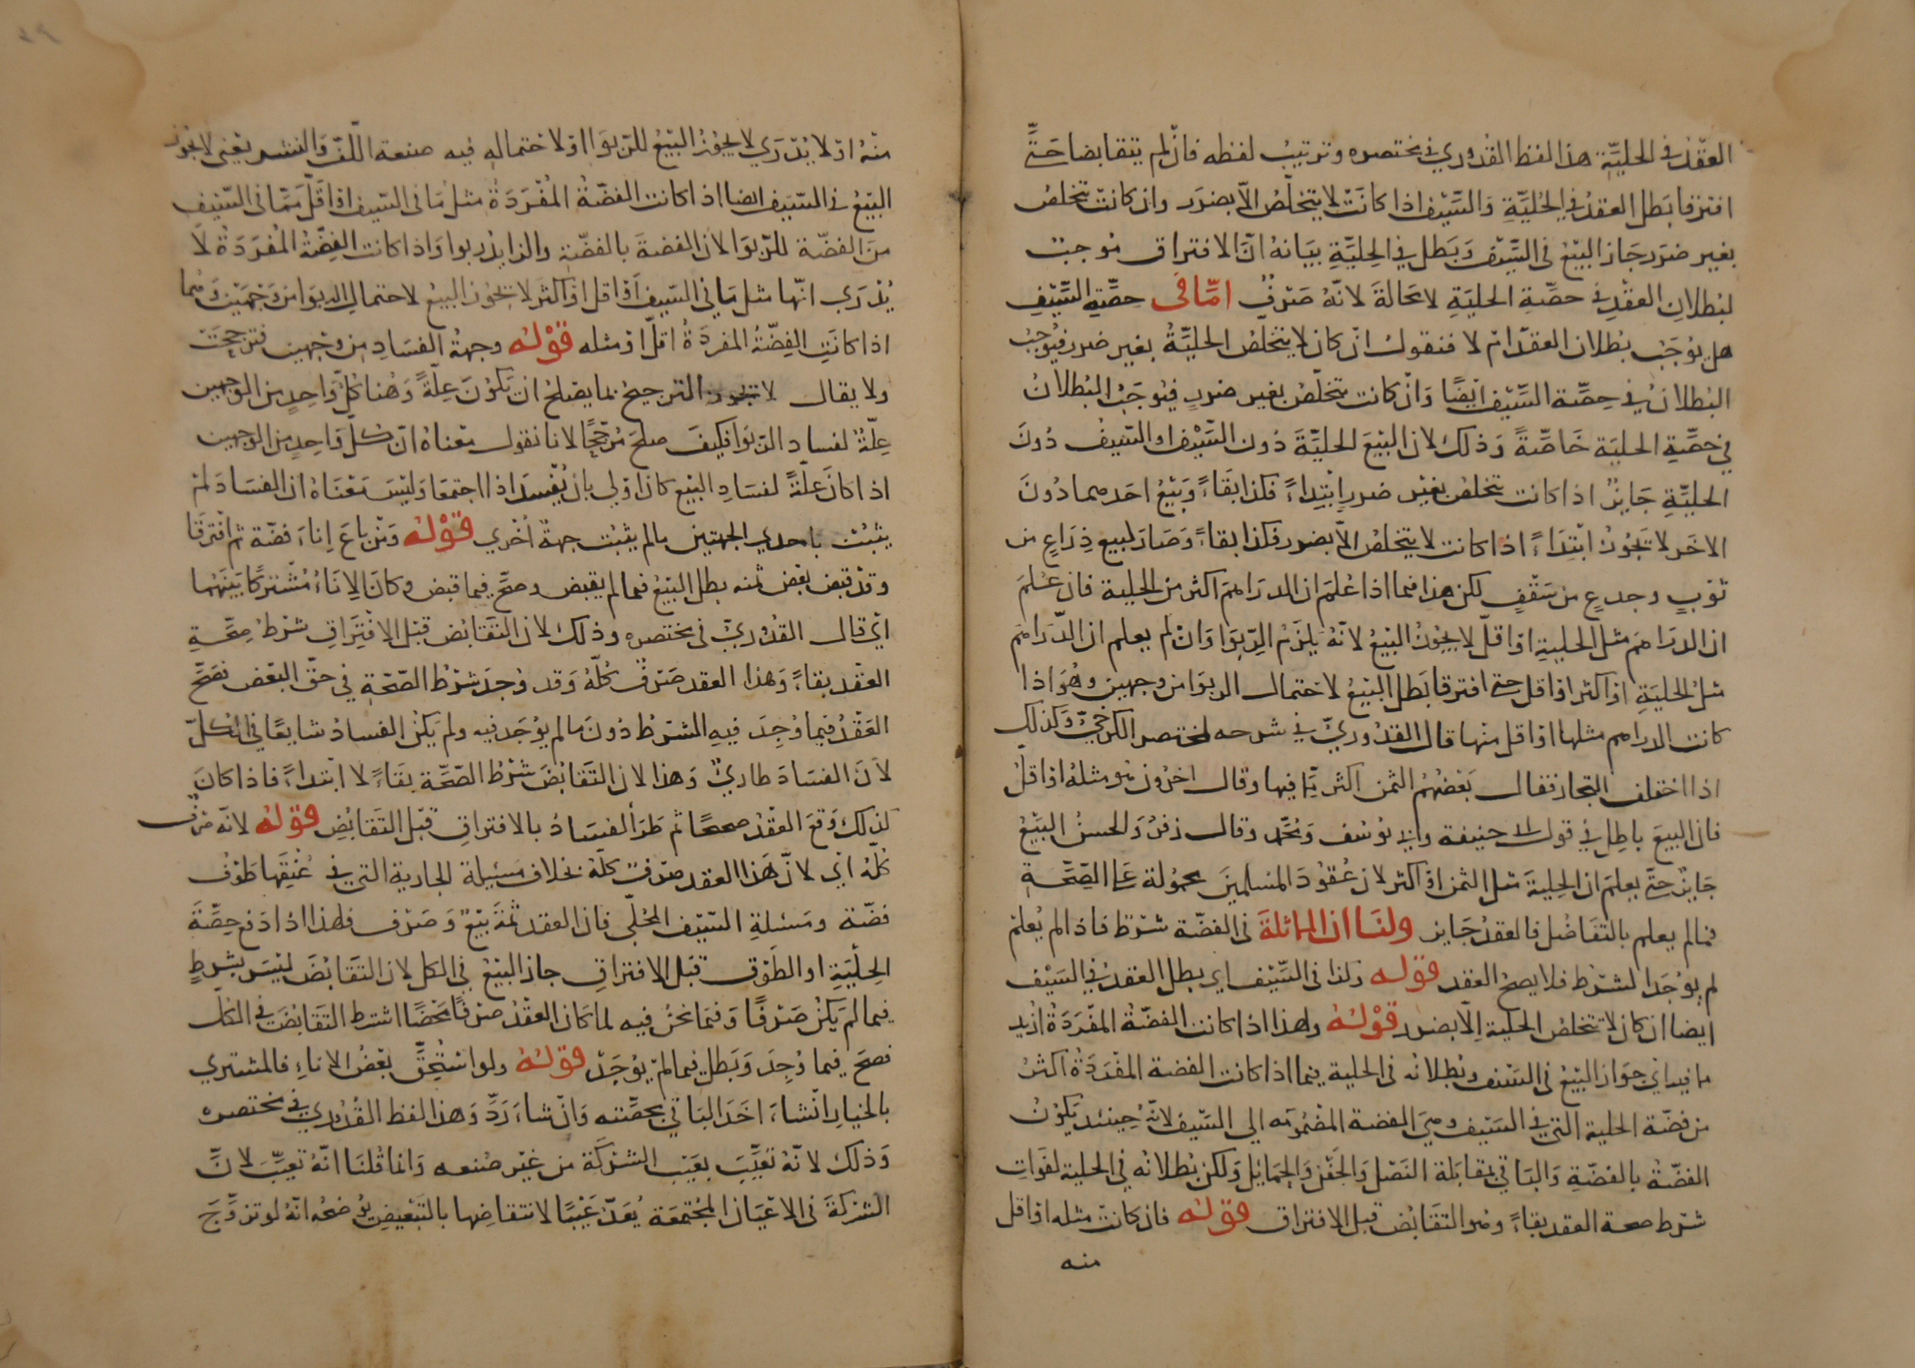 العقد في الحلية هذا لفظ القدوري في مختصره وترتيب لفظه فان لم يتقابضا حتى
افترقا بطل العقد في الحلية والسيف اذا كانت لا يتخلص الا بضرر وان كانت تتخلص
بغير ضرر جاز البيع في السيف وبطل في الحلية بيانه ان الافتراق موجب
لبطلان العقد في حصة الحلية لا محالة لانه صرف اما في حصة السيف
هل يوجب بطلان العقد ام لا فنقول ان كان لا يتخلص الحلية بغير ضرر فيوجب
البطلان في حصة السيف ايضا وان كانت تتخلص بغير ضرر فيوجب البطلان
في حصة الحلية خاصة وذلك لان البيع لحلية دون السيف او السيف دون
الحلية جايز اذا كانت تتخلص بغير ضرر ابتداء فكذا بقاء وبيع احدهما دون
الاخر لا يجوز ابتداء اذا كانت لا يتخلص الا بضرر فكذا بقاء وصار كبيع ذراع من
ثوب وجذع من سقف لكن هذا فيما اذا علم ان الدراهم اكثر من الحلية فان علم
ان الدراهم مثل الحلية او اقل لا يجوز البيع لانه يلزم الربوا وان لم يعلم ان الدراهم
مثل الحلية او اكثر او اقل حتى افترقا بطل البيع لاحتمال الربوا من وجهين وهو اذا
كانت الدراهم مثلها او اقل منها قال القدوري في شرحه لمختصر الكرخي وكذلك
اذا اختلف التجار فقال بعضهم الثمن اكثر مما فيها وقال اخرون هو مثله او اقل
فان البيع باطل في قول ابي حنيفة وابي يوسف ومحمد وقال زفر والحسن البيع
جايز حتى يعلم ان الحلية مثل الثمن او اكثر لان عقود المسلمين محمولة على الصحة
فما لم يعلم بالتفاضل فالعقد جايز ولنا ان المماثلة في الفضة شرط فاذا لم يعلم
لم يوجد الشرط فلا يصح العقد قوله وكذا في السيف اي بطل العقد في السيف
ايضا ان كان لا تتخلص الحلية الا بضرر قوله ولهذا اذا كانت الفضة المفردة ازيد
ما فيه اي جواز البيع في السيف وبطلانه في الحلية فيما اذا كانت الفضة المفردة اكثر
من فضة الحلية التي في السيف وهي الفضة المضمومة الى السيف لانه حينئذ يكون
الفضة بالفضة والباقي بمقابلة النصل والجفن والحمايل ولكن بطلانه في الحلية لفوات
شرط صحة العقد بقاء وهو التقابض قبل الافتراق قوله فان كانت مثله او اقل
منه
منه او لا يدري لا يجوز البيع للربوا او لاحتماله فيه صنعة اللف والنشر يعني لا يجوز
البيع في السيف ايضا اذا كانت الفضة المفردة مثل ما في السيف او اقل مما في السيف
من الفضة للربوا لان الفضة بالفضة والزايد ربوا واذا كانت الفضة المفردة لا
يدرى انها مثل ما في السيف او اقل او اكثر لا يجوز البيع لاحتمال الربوا من وجهين وهما
اذا كانت الفضة المفردة اقل او مثله قوله وجهة الفساد من وجهين فترجحت
ولا يقال لا يجوز الترجيح بما يصلح ان يكون علة وهنا كل واحد من الوجهين
علة لفساد الربوا فكيف صلح مرجحا لانا نقول معناه ان كل واحد من الوجهين
اذا كان علة لفساد البيع كان اولى بان يفسد اذا اجتمعا وليس معناه ان الفساد لم
يثبت باحدي الجهتين ما لم يثبت جهة اخري قوله ومن باع اناء فضة ثم افترقا
وقد قبض بعض ثمنه بطل البيع فيما لم يقبض وصح فيما قبض وكان الاناء مشتركا بينهما
اي قال القدوري في مختصره وذلك لان التقابض قبل الافتراق شرط صحة
العقد بقاء وهذا العقد صرف كله وقد وجد شرط الصحة في حق البعض فصح
العقد فيما وجد فيه الشرط دون ما لم يوجد فيه ولم يكن الفساد شايعا في الكل
لان الفساد طاري وهذا لان التقابض شرط الصحة بقاء لا ابتداء فاذا كان
كذلك وقع العقد صحيحا ثم طرا الفساد بالافتراق قبل التقابض قوله لانه صرف
كله اي لان هذا العقد صرف كله بخلاف مسئلة الجارية التي في عنقها طوق
فضة ومسئلة السيف المحلى فان العقد ثمة بيع وصرف فلهذا اذا دفع حصة
الحلية او الطوق قبل الافتراق جاز البيع في الكل لان التقابض ليس بشرط
فيما لم يكن صرفا وفيما نحن فيه لما كان العقد صرفا محضا اشترط التقابض في الكل
فصح فيما وجد وبطل فيما لم يوجد قوله ولو استحق بعض الاناء فالمشتري
بالخيار ان شاء اخذ الباقي بحصته وان شاء رد وهذا لفظ القدوري في مختصره
وذلك لانه تعيب بعيب الشركة من غير صنعه وانما قلنا انه تعيب لان
الشركة في الاعيان المجتمعة يعد عيبا لانتقاضها بالتبعيض يوضحه انه لو تزوج